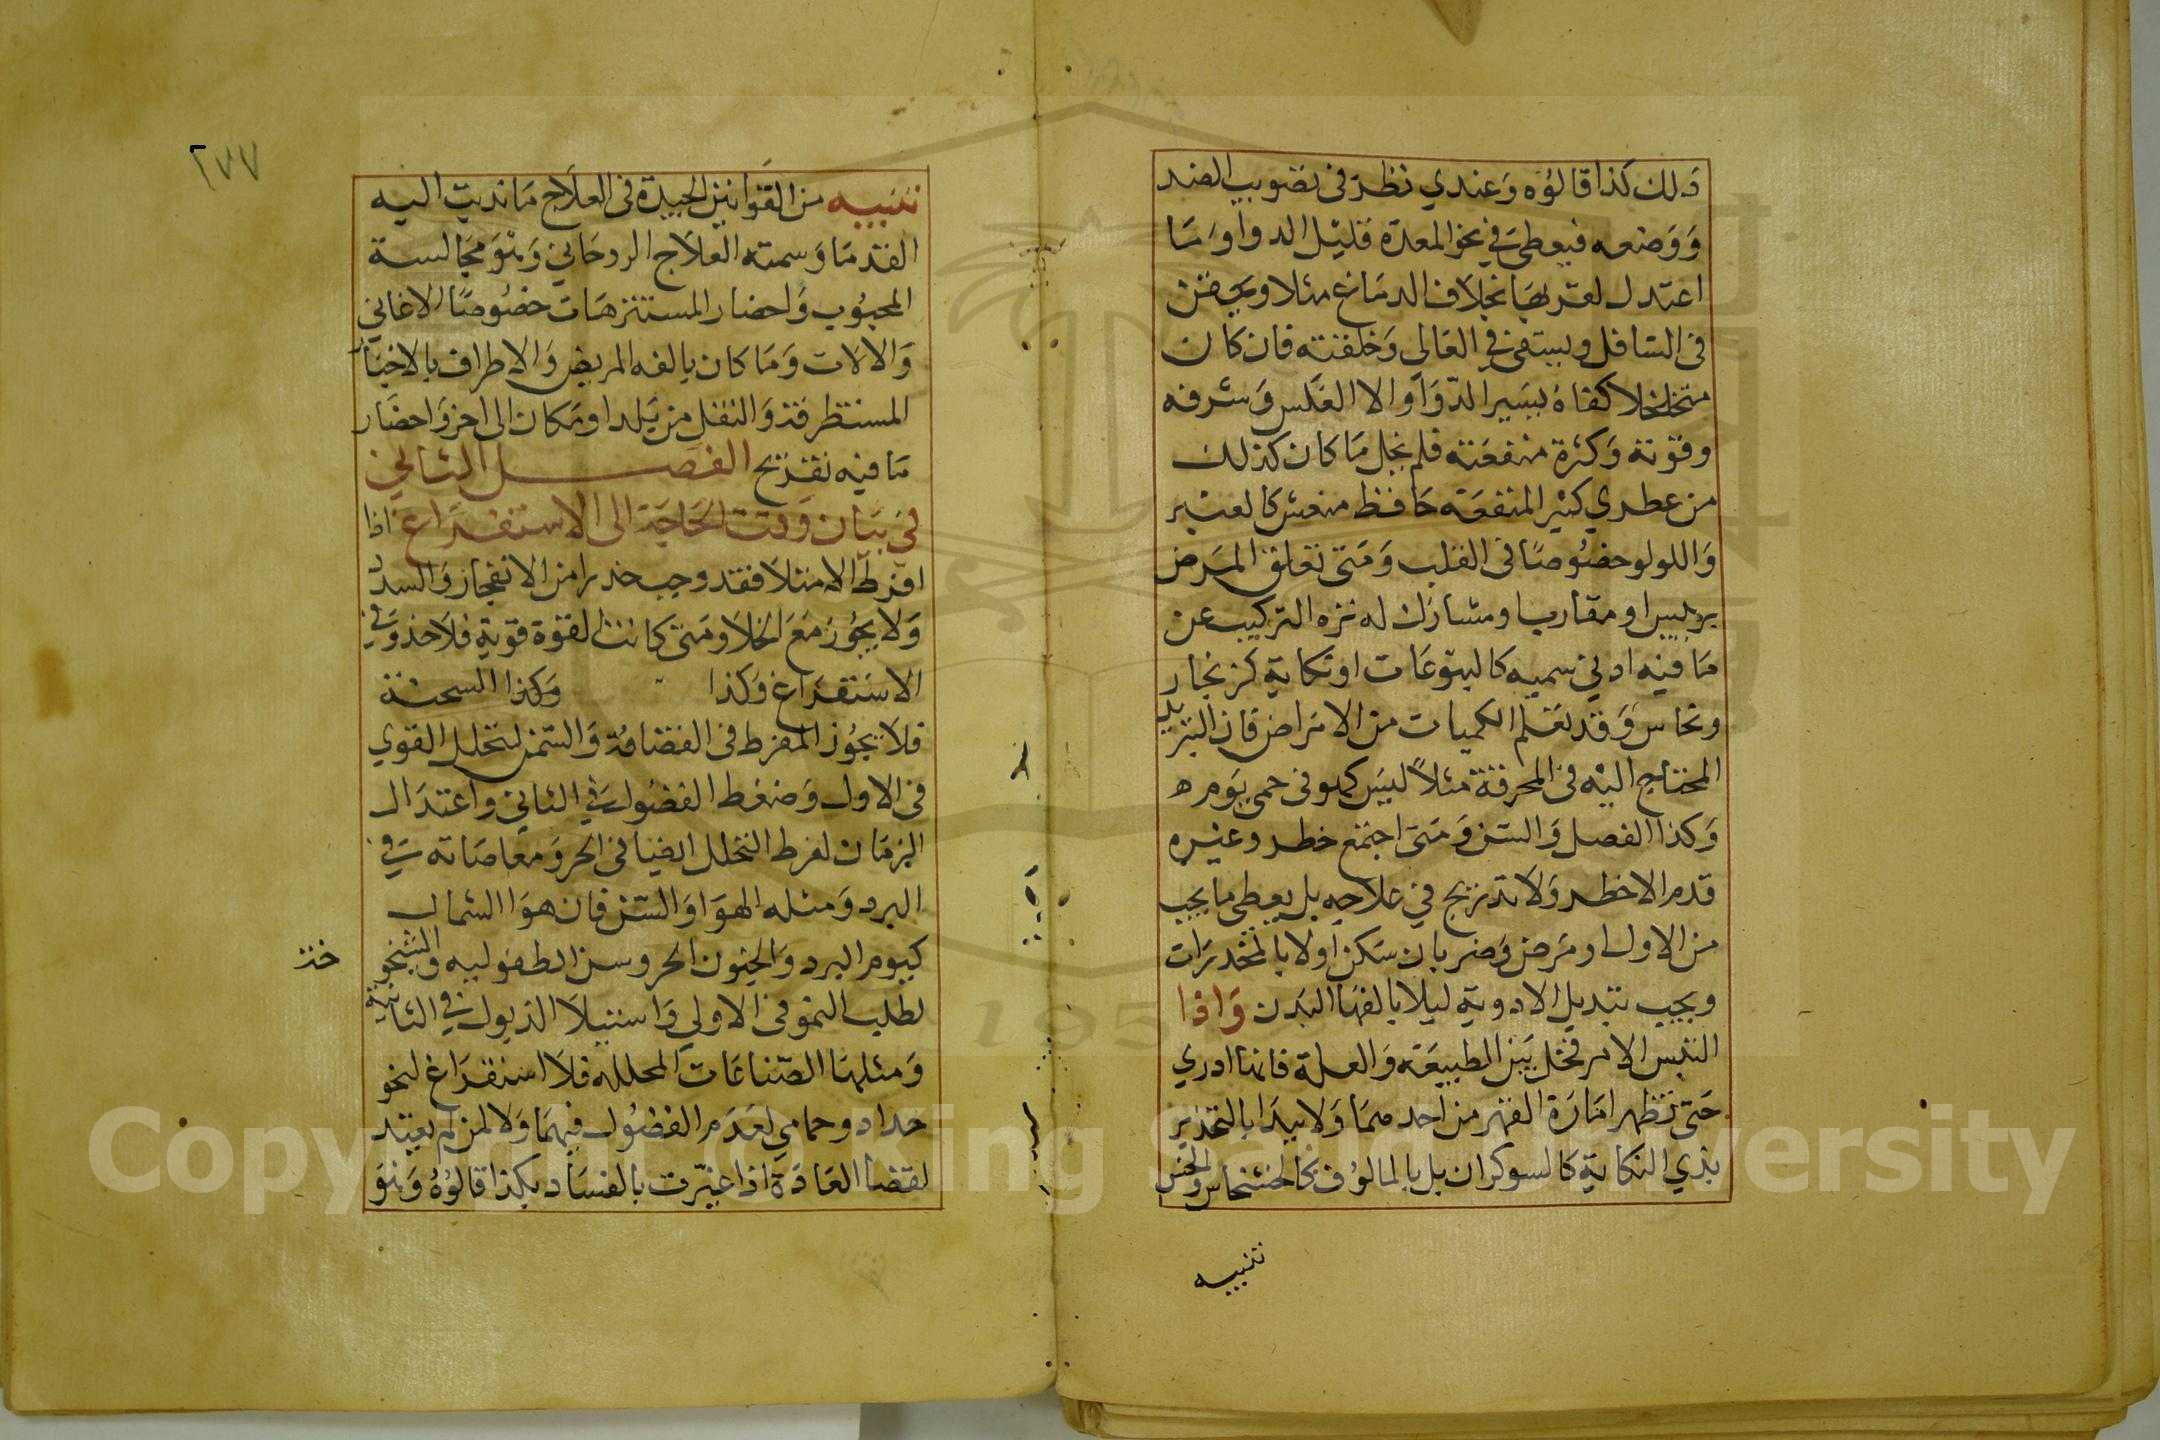 ذلك كذا قالوه وعندي نظر في تصويب الضد
ووضعه فيعطى في نحو المعدة قليل الدوا وما
اعتدل لقربها بخلاف الدماغ مثلا ويحقن
في السافل ويسقى في العالي وخلقته فان كان
متخلخلا كفاه يسير الدوا والا العكس وشرفه
وقوته وكثرة منفعته فلم نخل ما كان كذلك
من عطري كثير المنفعة حافظ منعش كالعنبر
واللولو خصوصا في القلب ومتى تعلق المرض
برييس او مقارب او مشارك له نزه التركيب عن
ما فيه ادنى سميه كاليتوعات او نكاية كزنجار
ونحاس وقد تعلم الكميات من الامراض فان التبريد
المحتاج اليه في المحرقة مثلا ليس كهو في حمى يوم ه
وكذا الفصل والسن ومتى اجتمع خطر وغيره
قدم الاخطر ولا تدريج في علاجه بل يعطى ما يجب
من الاول او مرض وضربان سكن اولا بالمخدرات
ويجب تبديل الادوية ليلا يالفها البدن واذا
التبس الامر فخل بين الطبيعة والعلة فانها ادرى
حتى تظهر امارة القهر من احدهما ولا يبدا بالتخدير
بذي النكاية كالسوكران بل بالمالوف كالخشخاش والخس
تنبيه
٢٧٧
تنبيه من القوانين الجيدة في العلاج ما ندبت اليه
القدما وسمته العلاج الروحاني وهو مجالسة
المحبوب واحضار المستنزهات خصوصا الاغاني
والالات وما كان يالفه المريض والاطراف بالاخبار
المستطرفة والنقل من بلد او مكان الى اخر واحضار
ما فيه تفريح الفصل الثاني
في بيان وقت الحاجة الى الاستفراغ اذا
افرط الامتلا فقد وجب حذرا من الانفجار والسدد
ولا يجوز مع الخلا ومتى كانت القوة قوية فلا خوف في
الاستفراغ وكذا وكذا السحنة
فلا يجوز المفرط في القضافة والسمن لتحلل القوي
في الاول وضغط الفضول في الثاني واعتدال
الزمان لفرط التحلل ايضا في الحر ومعاصاته في
البرد ومثله الهوا والسن فان هوا الشمال
كيوم البرد والجنون الحر وسن الطفولية والشيخوخة
لطلب النمو في الاولى واستيلا الذبول في الثانية
ومثلها الصناعات المحلله فلا استفراغ لنحو
حداد وحمامي لعدم الفضول فيهما ولا لمن لم يعتد
لقضا العادة اذا غيرت بالفساد هكذا قالوه وهو
Copyright © King Saud University
1957